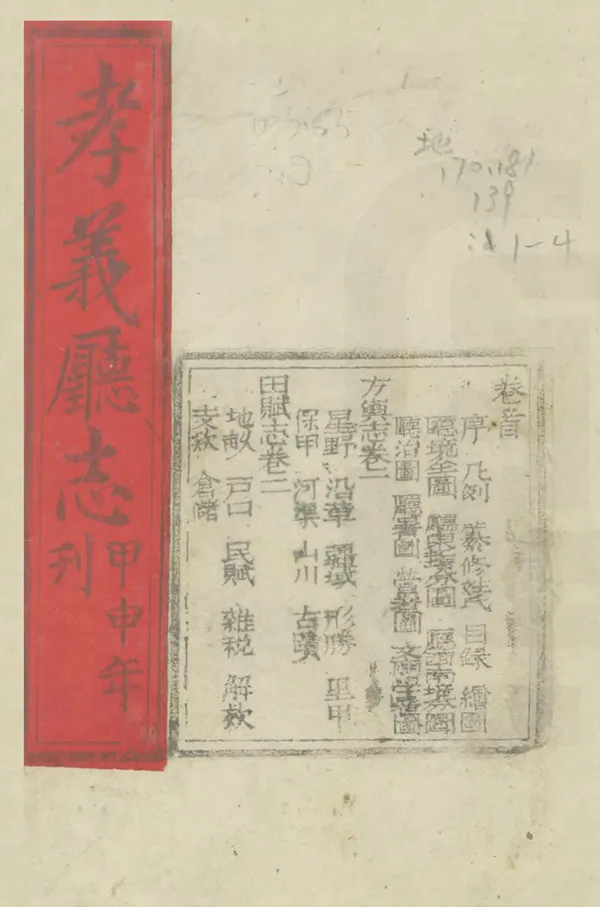 孝義廳志
甲申年
刊
地
170.181
139
1-4
卷首
序 凡例 纂修姓氏 目録 繪圖
廳境全圖
廳治圖 廳署圖
方輿志卷一
星野 沿革 疆域 形勝 里甲
保甲 河渠 山川 古蹟
田賦志卷二
地畝 戸口 民賦 雜稅 解款
支款 倉儲